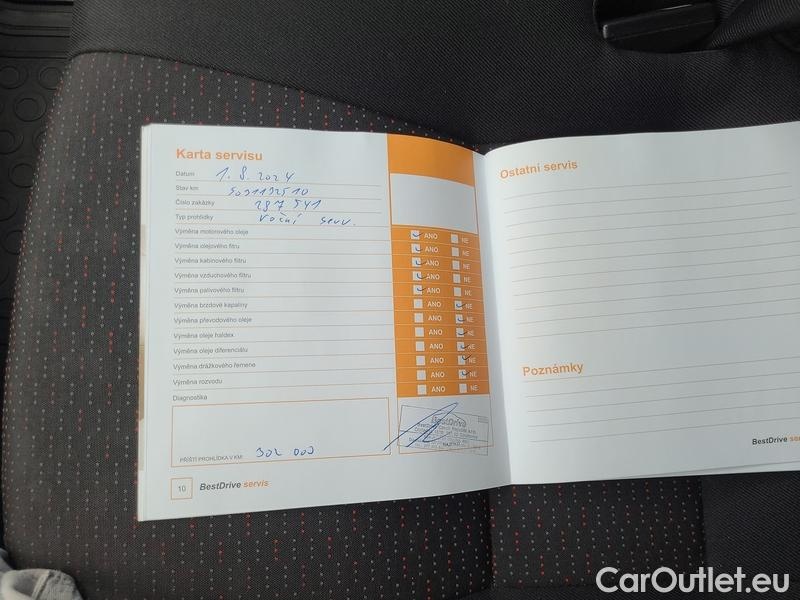 Karta servisu
Datum 1. 8. 2024
Stav km 5091192510
Číslo zakázky 287541
Typ prohlídky Roční serv.
Výměna motorového oleje ANO NE
Výměna olejového filtru ANO NE
Výměna kabinového filtru ANO NE
Výměna vzduchového filtru ANO NE
Výměna palivového filtru ANO NE
Výměna brzdové kapaliny ANO NE
Výměna převodového oleje ANO NE
Výměna oleje haldex ANO NE
Výměna oleje diferenciálu ANO NE
Výměna drážkového řemene ANO NE
Výměna rozvodu ANO NE
Diagnostika ANO NE
BestDrive
PŘÍŠTÍ PROHLÍDKA V KM: 302 000
10 BestDrive servis
Ostatní servis
Poznámky
BestDrive
CarOutlet.eu